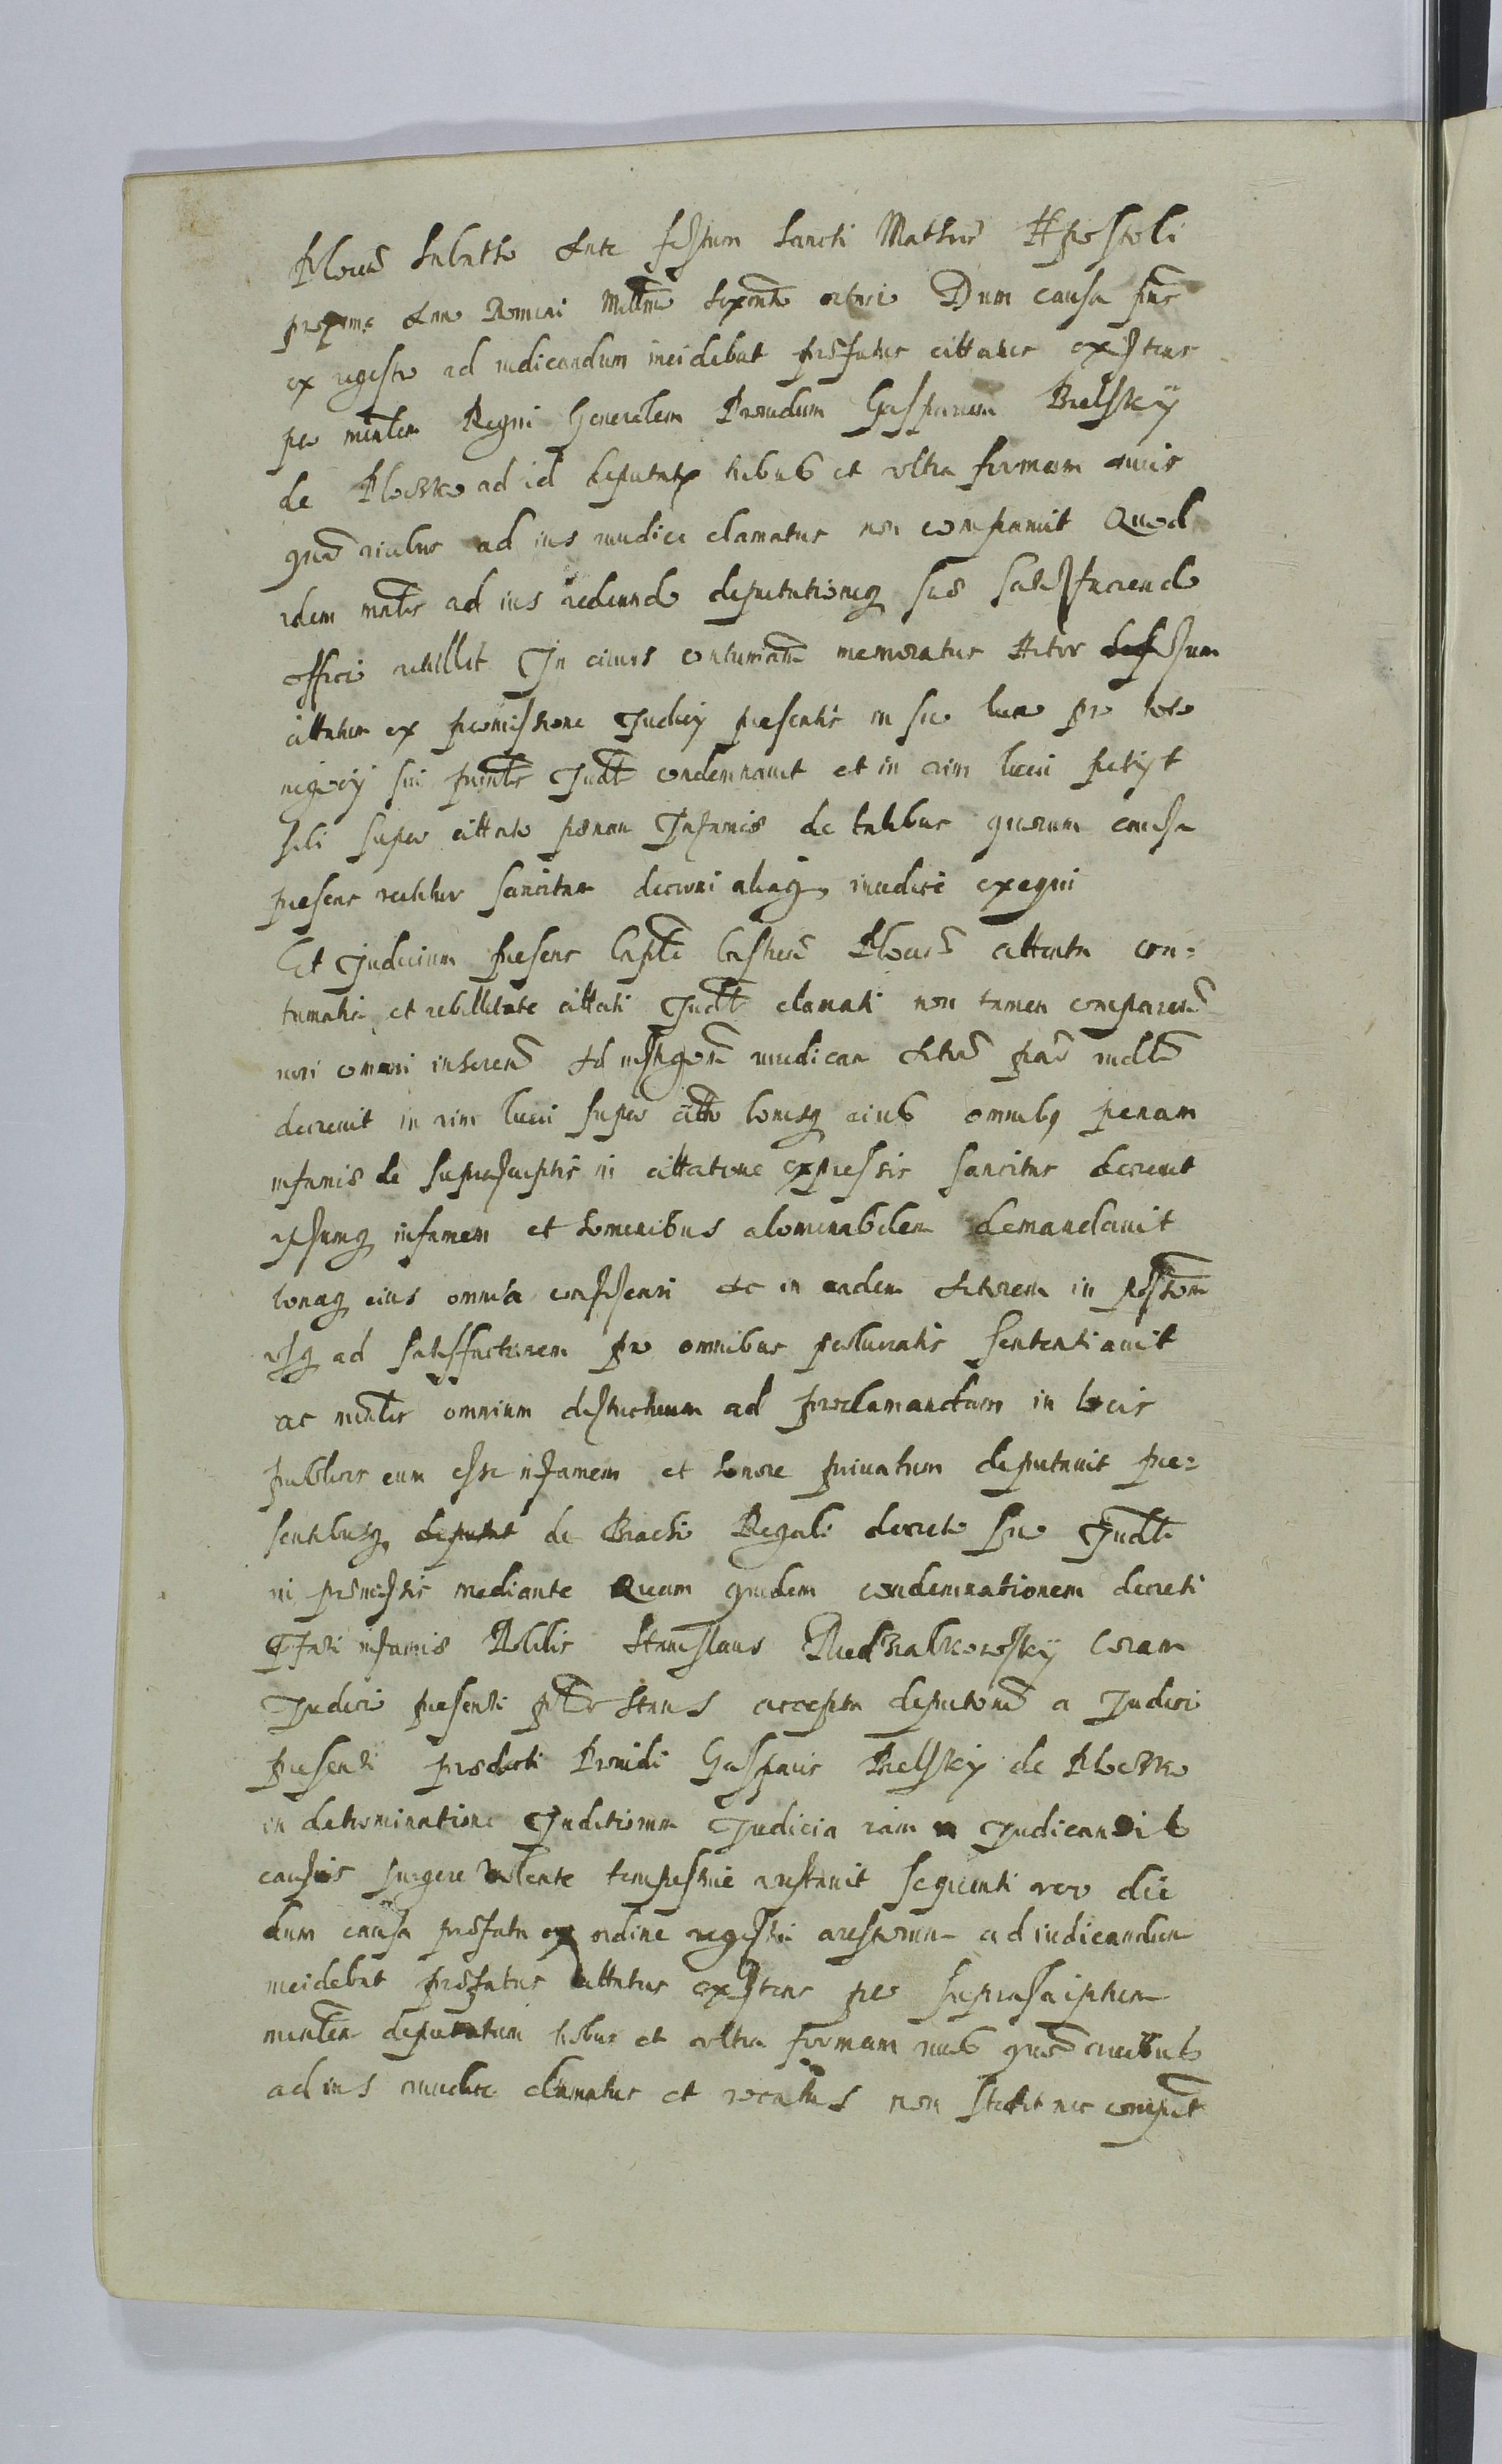 Plocen̄ Sabatho Ante festum Sancti Matheẽ Apostoli
proxime Ann Domini Millm̄o Sexcent̄o octavo Dum causa pn̄s
ex regestro ad iudicandum incidebat præfatus cittatus existens
per minlem̄ Regni Generalem Providum Gasparum Bielsky
de Ploczko ad id deputat tribus et ultra formam iuris
quā vicibus ad ius iuudice clamatus non comparuit Quod
idem mnl̄is ad ius redeundo deputationiq suæ satisfaciendo
offici retullit In cuius contumatiā memoratus Actor
cittatum ex præmissione Judicy præsentis in suo lucro pro toto
negocy sui pn̄tis Judt̄ condemnavit et in vim lucri petiyt
sibi super cittato pænam Infamiæ de talibus quorum causa
præsens vertitur sancitam decerni aliaq iuudice exequi
Et Judicium præsens Captl̄e Castren̄ Plocen̄ attenta con=
tumatia et rebellitate cittati Judt̄ clamati non tamen comparen̄
nec comparere Ad instgon̄ iuudicam Actor̄
decrevit in vim lucri super citto bonisq eius omnibq penam
infamiæ de suprascriptis in cittatione expressis sancitus decrevit
ipsumq infamem et hominibus abominabilem demandavit
bonaq eius omnia confiscari Ac in eadem Actorem in possion̄
usq ad satisffactionem pro omnibus pecuniatis sententiavit
ac minl̄es omnium districtuum ad proclamandum in locis
publicis eum esse infamem et honore privatum deputavit præ=
sentibusq deputat de Brachio Regali decreto suo Judt̄i
in præmissis mediante Quam quidem condemnationem decreti
infamiæ Nobilis Stanislaus Niedzialkowsky Coram
Judicio præsenti ptr̄ Stans accepta deputon̄e a Judicio
præsenti prædicti Providi Gasparis Bielsky de Ploczko
in determinatione Juditiorum Judicia iam in Judicandis
causis surgere volente tempestive arestavit sequenti vero die
dum causa præfata ex ordine regestri arestorum ad iudicandum
incidebat præfatus cittatus existens per suprascriptum
minlem̄ deputatum tribus et ultra formam iuris quā vicibus
ad ius iuudice clamatus et vocatus non stetit nec comp̄t